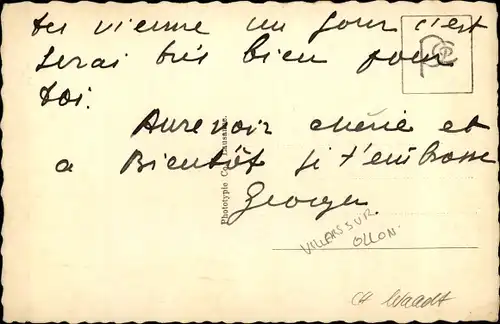 tu vienne un jour c'est
serai très bien pour
toi.
Aurevoir chérie et
a Bientôt je t'embrasse
Georges.
Phototypie Co., Lausanne.
VILLARS SUR
OLLON.
CH Waadt